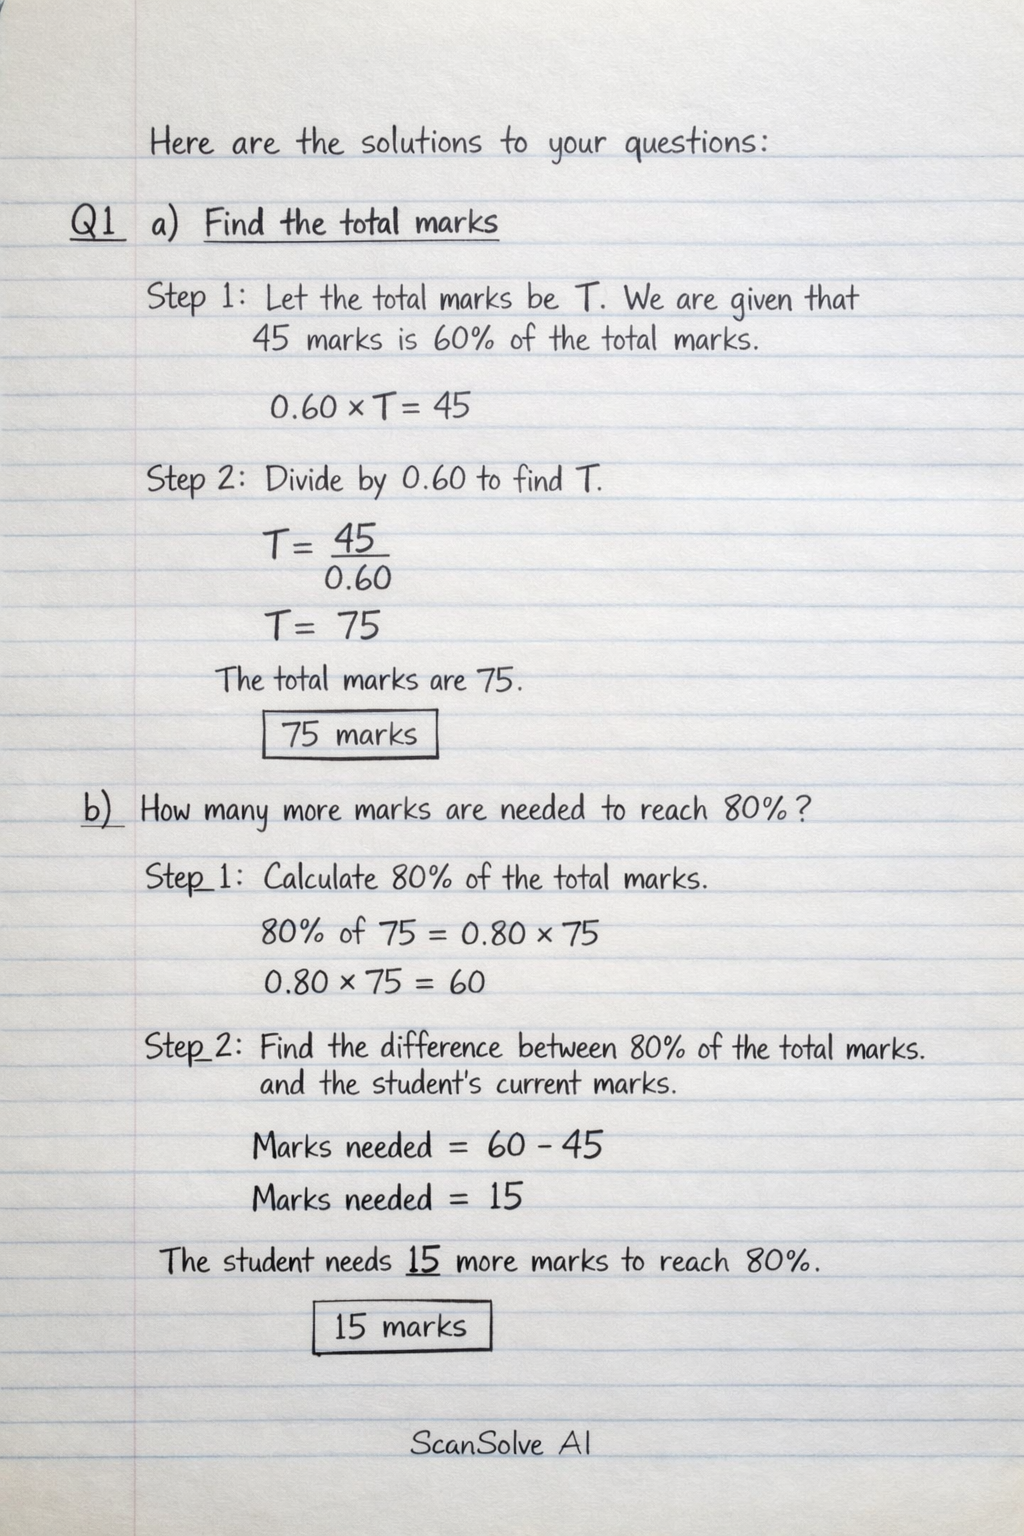 Here are the solutions to your questions:
Q1 a) Find the total marks
Step 1: Let the total marks be T. We are given that
45 marks is 60% of the total marks.
0.60 × T = 45
Step 2: Divide by 0.60 to find T.
T = 45
0.60
T = 75
The total marks are 75.
75 marks
b) How many more marks are needed to reach 80%?
Step 1: Calculate 80% of the total marks.
80% of 75 = 0.80 × 75
0.80 × 75 = 60
Step 2: Find the difference between 80% of the total marks.
and the student's current marks.
Marks needed = 60 - 45
Marks needed = 15
The student needs 15 more marks to reach 80%.
15 marks
ScanSolve AI